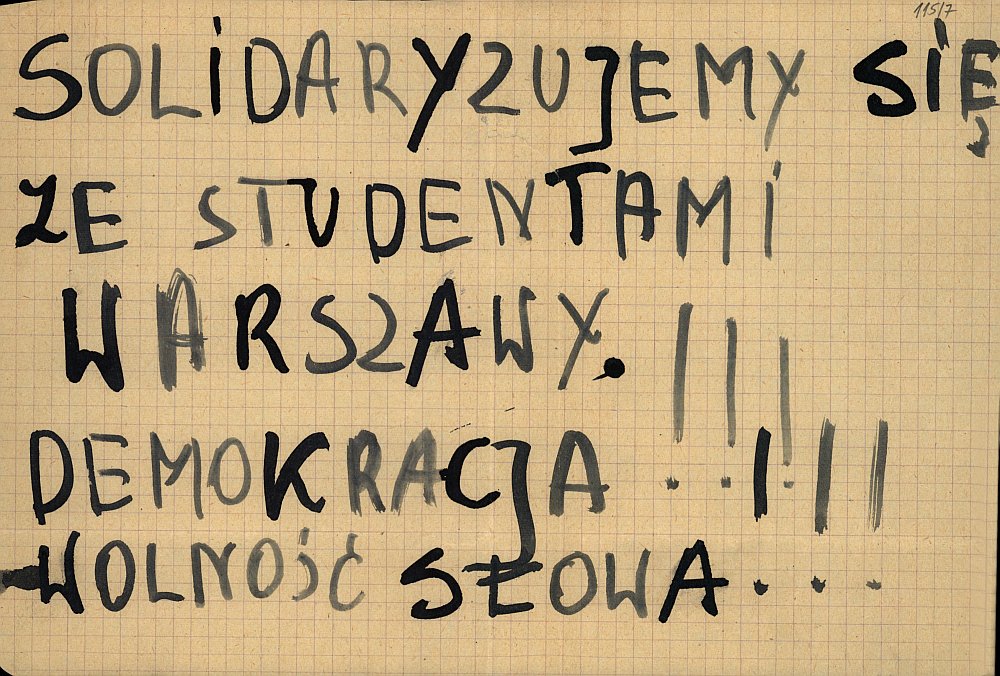 115/7
SOLiDARYZUJEMY SIĘ
ZE STUDENTAMi
WARSZAWY.
DEMOKRACJA !!!
WOLNOŚĆ SŁOWA !!!